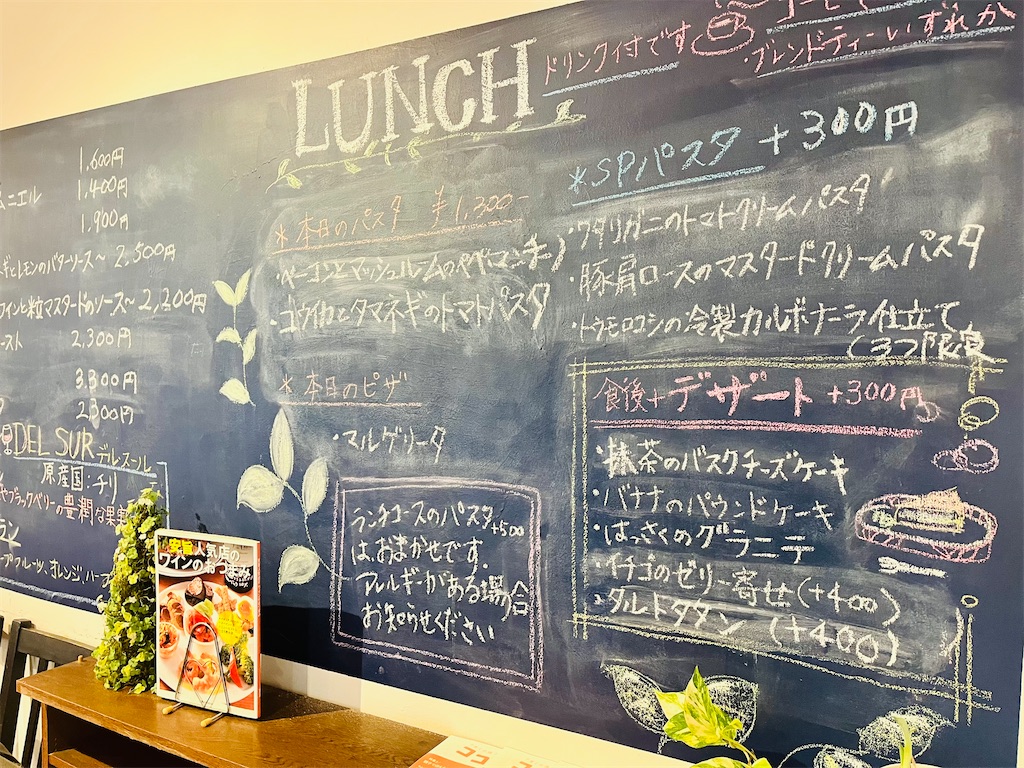 1,600円
ムニエル 1,400円
1,900円
ギとレモンのバターソース〜 2,500円
ワインと粒マスタードのソース〜 2,200円
ースト 2,300円
3,300円
2300円
DEL SUR デルスール
原産国:チリ
やブラックベリーの豊潤な果実
ラン
アップルーツ、オレンジ、ハーブ
LUNCH
ドリンク付です
・ブレンドティーいずれか
*本日のパスタ ¥1,300-
・ベーコンとマッシュルームのペペロンチーノ
・コウイカとタマネギのトマトパスタ
*本日のピザ
・マルゲリータ
ランチコースのパスタ+500
は、おまかせです.
アレルギーがある場合
お知らせください
*SPパスタ +300円
・ワタリガニのトマトクリームパスタ
・豚肩ロースのマスタードクリームパスタ
・トウモロコシの冷製カルボナーラ仕立て
(3つ限定
食後+デザート +300円
・抹茶のバスクチーズケーキ
・バナナのパウンドケーキ
・はっさくのグラニテ
・イチゴのゼリー寄せ(+400)
・タルトタタン (+400)
人気店の
ワインのおつまみ
ココ